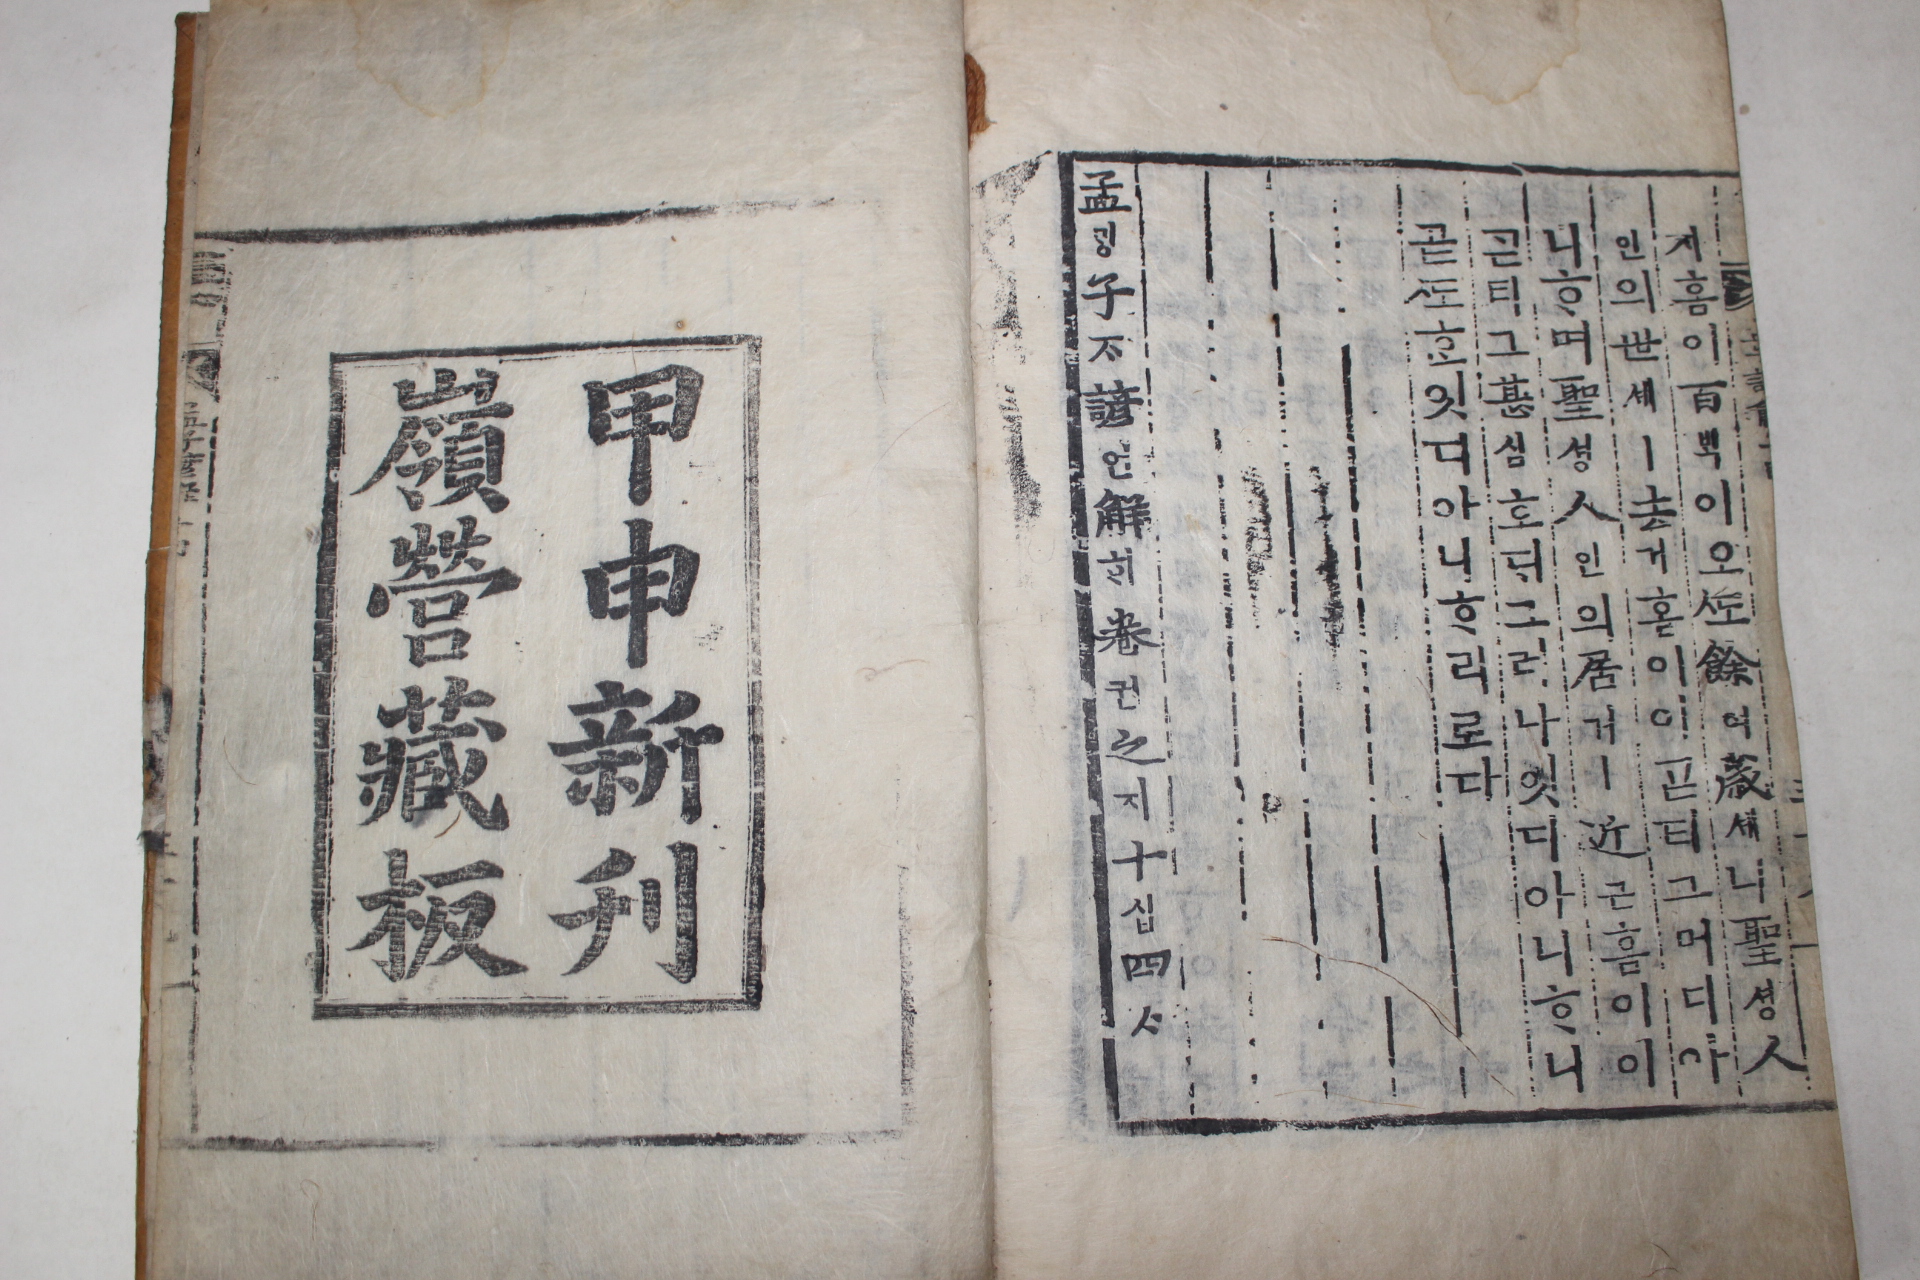 지흠이百ᄇᆡᆨ이오ᄯᅩ餘여歲셰니聖셩人
인의世셰ㅣ去거홈이이ᄀᆞᆮ티그머디아
니ᄒᆞ며聖셩人인의居거ㅣ近근흠이이
ᄀᆞᆮ티그甚심호ᄃᆡ그러나잇디아니ᄒᆞ니
곧ᄯᅩᄒᆞᆫ잇디아니ᄒᆞ리로다
孟ᄆᆡᆼ子ᄌᆞ諺언解ᄒᆡ卷권之지十십四ᄉᆞ
甲申新刊
嶺營藏板